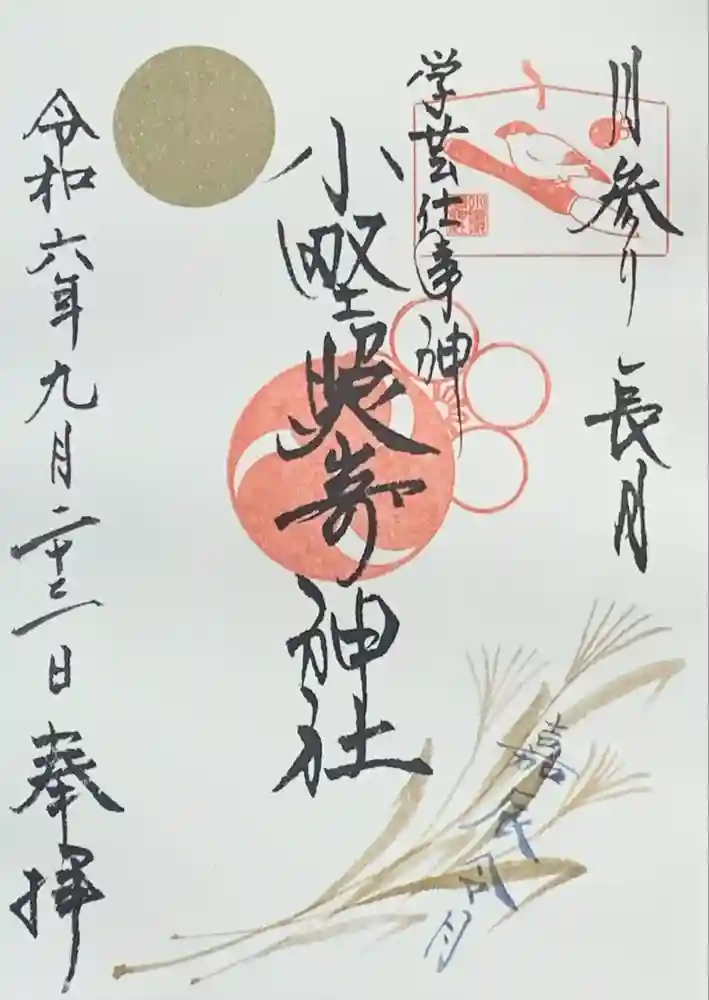 月参り 長月
学芸仕事神
小野照崎神社
令和六年九月二十三日 奉拝